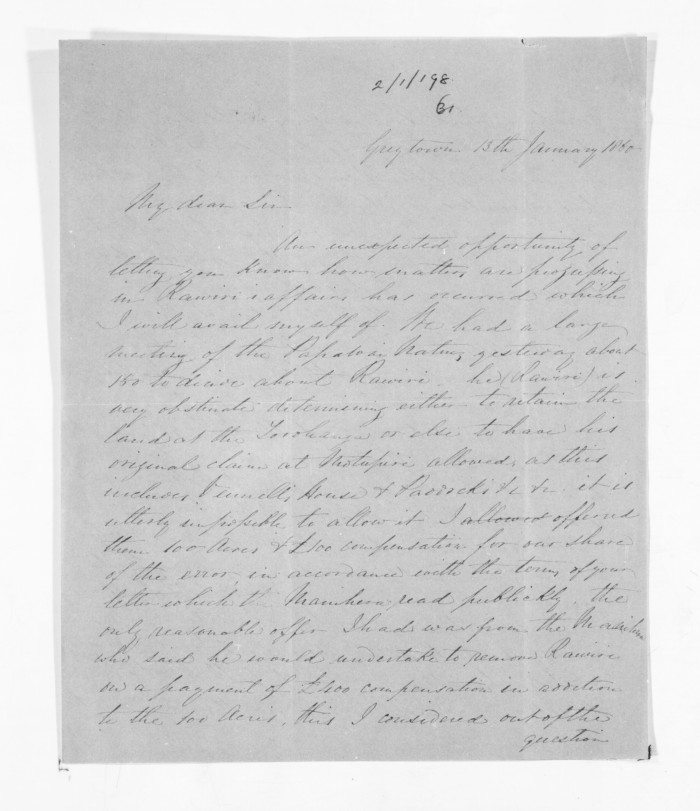 2/1/198
61
Greytown 13th January 1860
My dear Sir
An unexpected opportunity of
letting you know how matters are progressing
in Rawiri's affairs has occurred which
I will avail myself of. We had a large
meeting of the Papawai Natives yesterday about
150 to decide about Rawiri. he (Rawiri) is
very obstinate determining either to retain the
land at the or else to have his
original claim at allowed, as this
includes House & Paddocks &c &c. it is
utterly impossible to allow it I allowed offered
them 100 Acres & £100 compensation for our share
of the error, in accordance with the terms of your
letter which read publickly. the
only reasonable offer I had was from the
who said he would undertake to remove Rawiri
on a payment of £400 compensation in addition
to the 100 Acres, this I considered out of the
question